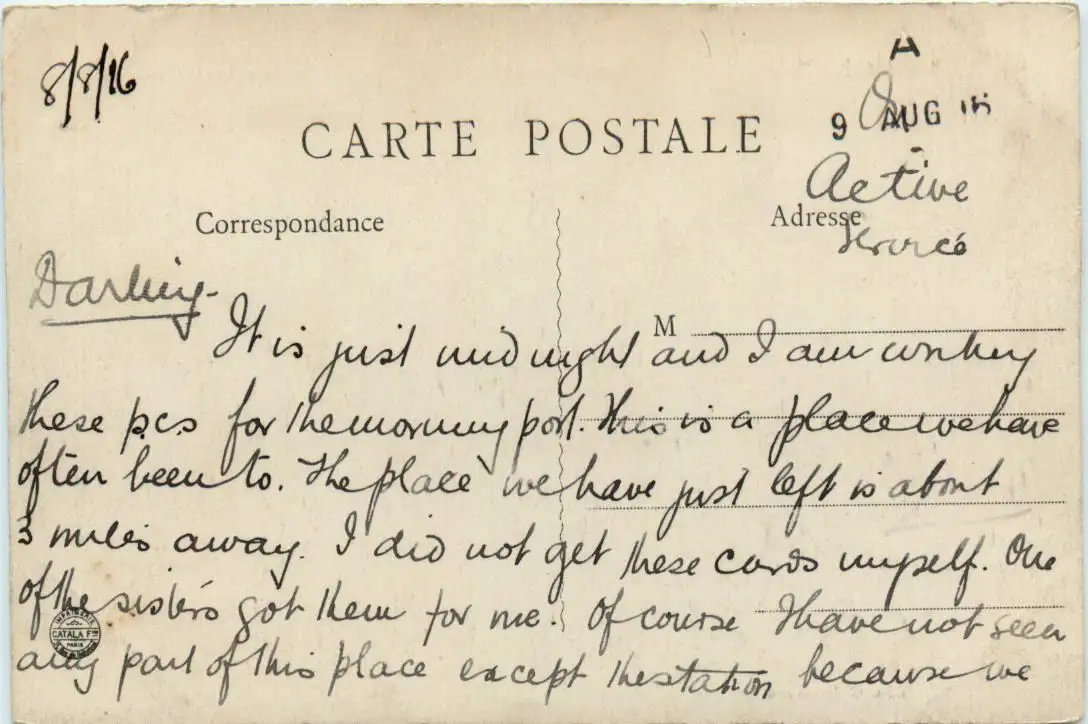 8/8/16
A
9 AUG 16
CARTE POSTALE
Active
Correspondance
Adresse
Service
Darling-
M
It is just midnight and I am writing
these p.c.s for the morning post. This is a place we have
often been to. The place we have just left is about
3 miles away. I did not get these cards myself. One
of the sisters got them for me. Of course I have not seen
any part of this place except the station because we
IMPRIMERIE
CATALA Fres
PARIS